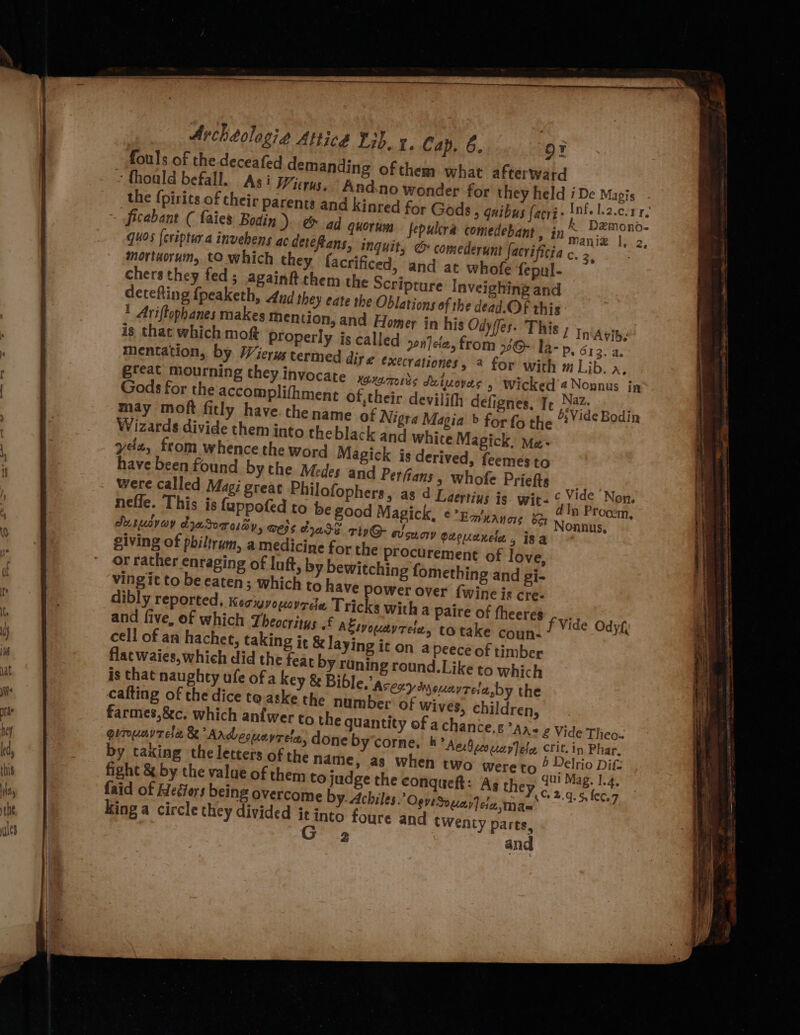 Archæologiæ Atticæ Lib. 1. Cap. 6. 91
souls of the deceased demanding of them what afterward
should befall. As i Wierus. And no wonder for they held
the spirits of their parents and kinred for Gods, quibus sacri-
ficabant ( saies Bodin ) & ad quorum sepulcra comedebant, in
quos scriptura invehens ac detestans, inquit, & comederunt sacrificia
mortuorum, to which they sacrificed, and at whose sepul-
chers they fed; against them the Scripture Inveighing and
detesting speaketh, And they eate the Oblations of the dead. Of this
l Aristophanes makes mention, and Homer in his Odysses. This
is that which most properly is called γοητεία, from γόος la-
mentation, by Wierus termed diræ execrationes, a for with
great mourning they invocate κακοποιὺς δαίμονας, wicked
Gods for the accomplishment of their devilish designes. It
may most fitly have the name of Nigra Magia b for so the
Wizards divide them into the black and white Magick. Μα-
γεία, from whence the word Magick is derived, seemes to
have been found by the Medes and Persians, whose Priests
were called Magi great Philosophers, as d Laertius is wit-
nesse. This is supposed to be good Magick, e
giving of philtrum, a medicine for the procurement of love,
or rather enraging of lust, by bewitching something and gi-
ving it to be eaten; which to have power over swine is cre-
dibly reported. Κοσκινομαντεία Tricks with a paire of sheeres
and sive, of which Theocritus .f Αξινομαντεία, to take coun-
cell of an hachet, taking it & laying it on a peece of timber
flat waies, which did the feat by runing round. Like to which
is that naughty use of a key & Bible. by the
casting of the dice to aske the number of wives, children,
farmes, &c. which answer to the quantity of a chance. g Ἀλ-
φιτομαντεία & Ἀλευρομαντεία, done by corne. h Ἀριθμομαντεία
by taking the letters of the name, as when two were to
fight & by the value of them to judge the conquest: As they
said of Hectors being overcome by Achilles. Ὀρνιθομαντεία, ma-
king a circle they divided it into foure and twenty partes,
G 2
and
i De Magis
Inf. l.2.c.11.
k Dæmono-
maniæ l. 2.
c. 3.
l In Avibs
p. 613. a.
m Lib. λ.
a Nonnus in
Naz.
b Vide Bodin
c Vide Non.
d In Proœm.
Nonnus.
f Vide Odyss
g Vide Theo-
crit. in Phar.
h Delrio Dis-
qui Mag. l.4.
c. 2. q. 5. sec. 7